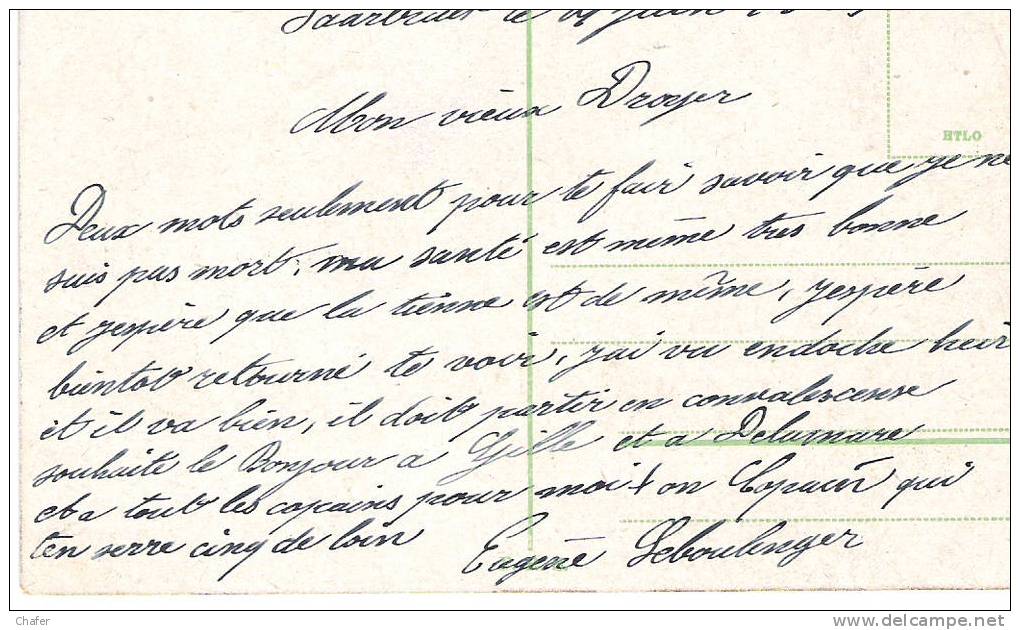 Saarbruck le juin
Mon vieux Droyer
HTLO
Deux mots seulement pour te fair savoir que je ne
suis pas mort, ma santé est même tres bonne
et jespère que la tienne est de même, jespère
bientot retourné te voir, j'ai vu endoche heir
et il va bien, il doit partir en convalescense
souhaite le Bonjour a Gille et a Delamare
et a tout les copains pour moi ton Copain qui
t'en serre cinq de loin
Eugène Leboulenger
Chafer
www.delcampe.net